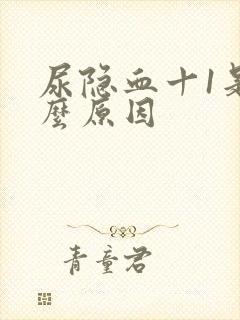 尿隐血十1是
麽原因
青童君